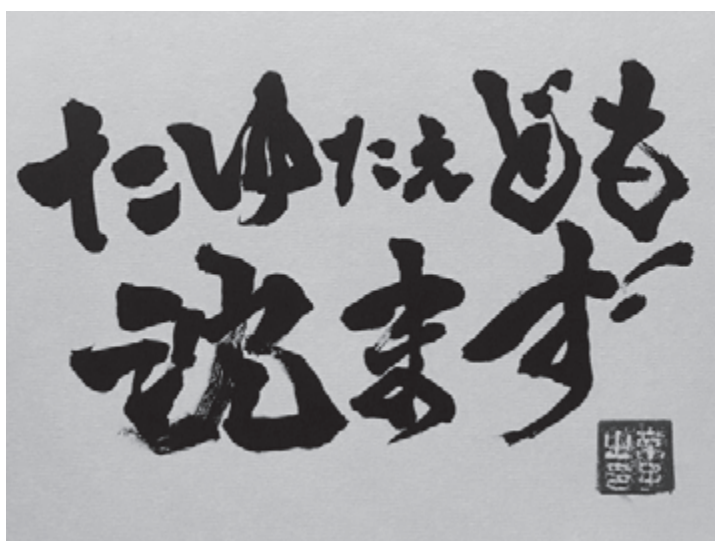 たゆたえども
沈まず